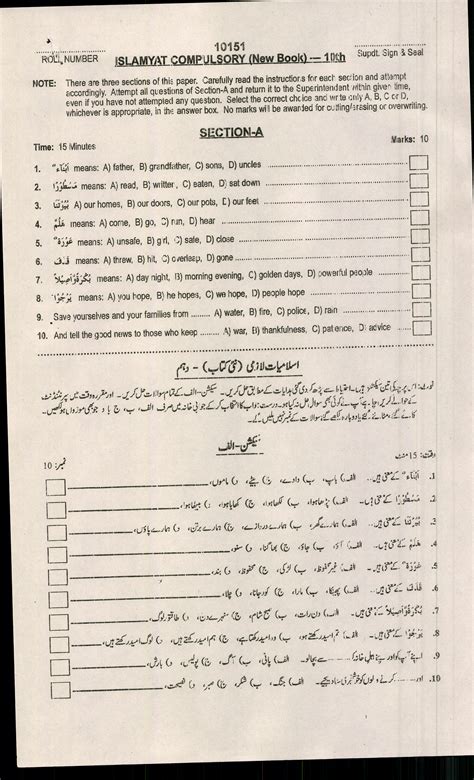 10151
ROLL NUMBER
ISLAMYAT COMPULSORY (New Book) — 10th
Supdt. Sign & Seal
NOTE: There are three sections of this paper. Carefully read the instructions for each section and attempt
accordingly. Attempt all questions of Section-A and return it to the Superintendent within given time,
even if you have not attempted any question. Select the correct choice and write only A, B, C or D,
whichever is appropriate, in the answer box. No marks will be awarded for cutting/erasing or overwriting.
SECTION-A
Time: 15 Minutes
Marks: 10
1. أَبْنَاءَ means: A) father, B) grandfather, C) sons, D) uncles
2. مَسْطُوْرًا means: A) read, B) writter, C) eaten, D) sat down
3. means: A) Our homes, B) our doors, C) our pots, D) our feet
4. هَلُمَّ means: A) come, B) go, C) run, D) hear
5. عَوْرَةٌ means: A) unsafe, B) girl, C) safe, D) close
6. قَذَفَ means: A) threw, B) hit, C) overlap, D) gone
7. بُكْرَةً وَّاَصِيْلًا means: A) day night, B) morning evening, C) golden days, D) powerful people
8. يَرْجُوْا means: A) you hope, B) he hopes, C) we hope, D) people hope
9. Save yourselves and your families from ....... A) water, B) fire, C) police, D) rain
10. And tell the good news to those who keep ........ A) war, B) thankfulness, C) patience, D) advice
اسلامیات لازمی (نئی کتاب) - دہم
سیکشن-الف
وقت: 15 منٹ
نمبر: 10
1. أَبْنَاءَ کے معنی ہیں... الف) باپ، ب) دادے، ج) بیٹے، د) ماموں،
2. مَسْطُوْرًا کے معنی ہیں... الف) پڑھا ہوا، ب) لکھا ہوا، ج) کھایا ہوا، د) بیٹھا ہوا،
3. کے معنی ہیں... الف) ہمارے گھر، ب) ہمارے دروازے، ج) ہمارے برتن، د) ہمارے پاؤں،
4. هَلُمَّ کے معنی ہیں... الف) آؤ، ب) جاؤ، ج) بھاگنا، د) سنو،
5. عَوْرَةٌ کے معنی ہیں... الف) غیر محفوظ، ب) لڑکی، ج) محفوظ، د) بند،
6. قَذَفَ کے معنی ہیں... الف) پھینکا، ب) مارا، ج) کودجانا، د) چلا،
7. بُكْرَةً وَّاَصِيْلًا کے معنی ہیں... الف) دن رات، ب) صبح شام، ج) سنہرے دن، د) طاقتور لوگ،
8. يَرْجُوْا کے معنی ہیں... الف) تم امید رکھتے ہو، ب) وہ امید رکھتا ہے، ج) ہم امید رکھتے ہیں، د) لوگ امید رکھتے ہیں،
9. اپنے آپ کو اور اپنے اہل خانہ کو ...... سے بچاؤ۔ الف) پانی، ب) آگ، ج) پولیس، د) بارش،
10. اور ...... کرنے والوں کو خوشخبری سنا دیجیے۔ الف) جنگ، ب) شکر، ج) صبر، د) نصیحت،